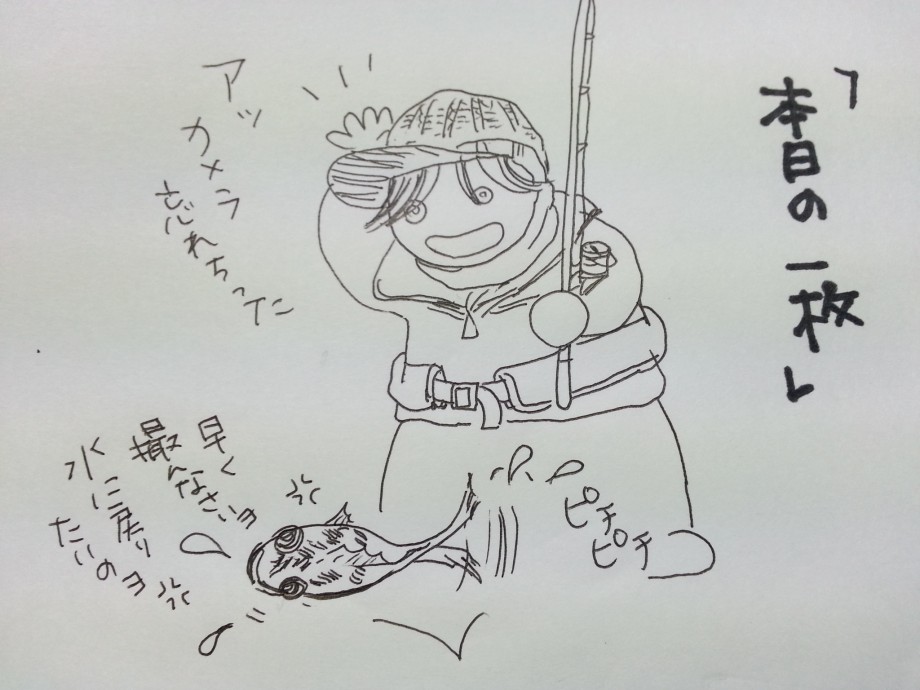 「本日の一枚」
アッ
カメラ
忘れちった
早く
撮んなさいヨ
水に戻り
たいのヨ
ピチ
ピチ